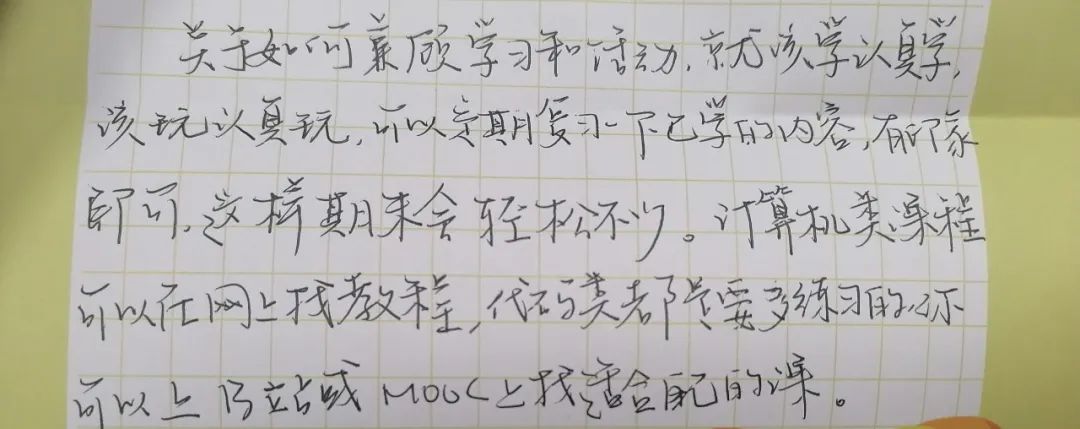 关于如何兼顾学习和活动,就该学认真学,
该玩认真玩,可以定期复习一下已学的内容,有印象
即可,这样期末会轻松不少。计算机类课程
可以在网上找教程,代码类都是要多练习的,你
可以上B站或MOOC上找适合自己的课。